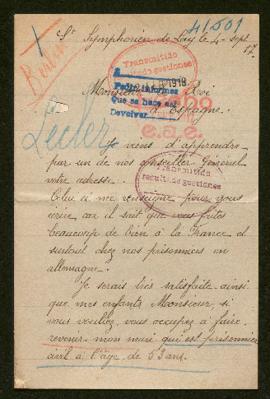 41501
St Symphorien de Lay le 4 Sept
17
Transmitido
Monsieur le Roi
d'Espagne.
Pedir informes
Que se hace así
Devolver
Lecler
e.a.e.
Je viens d'apprendre
par un de nos Conseiller Général
votre adresse.
Celui ci me renseigne pour vous
écrire car il sait que vous faites
beaucoup de bien à la France et
surtout chez nos prisonniers en
allemagne.
Transmitido
resultado gestiones
Je serais très satisfaite ainsi
que mes enfants Monsieur, si
vous voulez, vous occuper à faire
revenir mon mari qui est prisonnier
civil à l'âge de 53 ans.